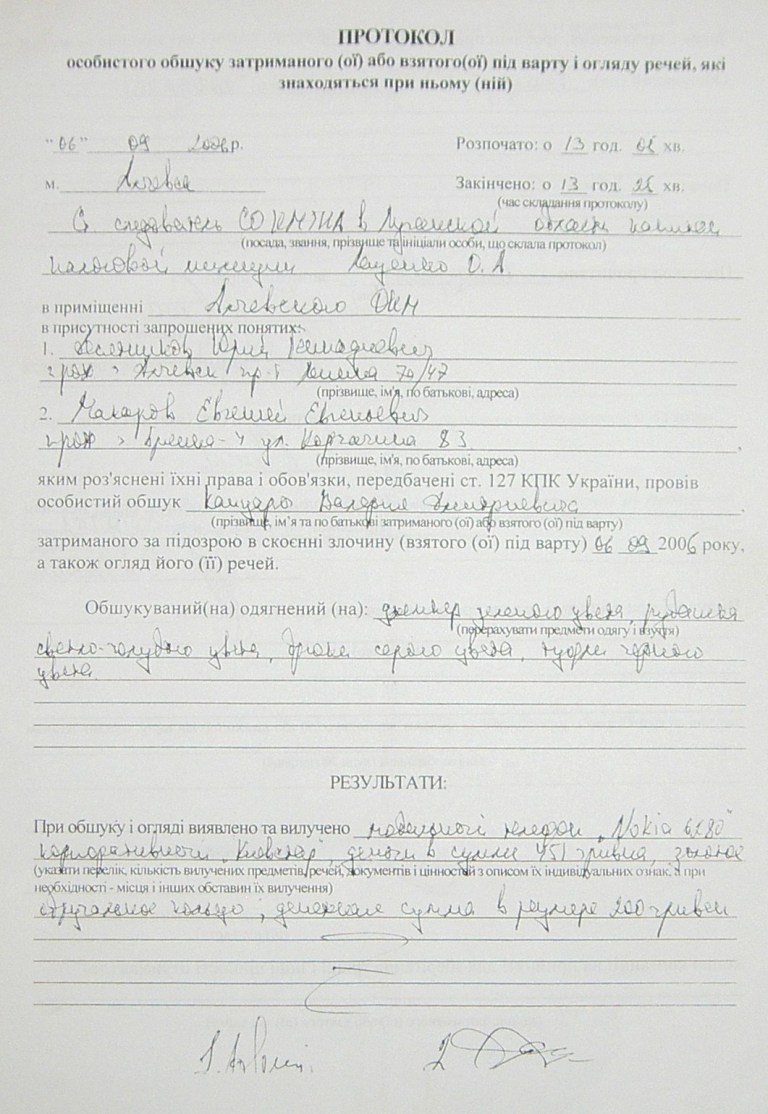 ПРОТОКОЛ
особистого обшуку затриманого (ої) або взятого(ої) під варту і огляду речей, які
знаходяться при ньому (ній)
"06" 09 2006р. Розпочато: о 13 год. 05 хв.
м. Алчевск Закінчено: о 13 год. 25 хв.
(час складання протоколу)
Ст следователь СО в Луганской области капитан
(посада, звання, прізвище та ініціали особи, що склала протокол)
налоговой милиции Яценко О. А.
в приміщенні Алчевского
в присутності запрошених понятих:
1. Юрий Геннадиевич
г. Алчевск пр-т Ленина 70/47
(прізвище, ім'я, по батькові, адреса)
2. Макаров Евгений Евгеньевич
ул. Корчагина 83
(прізвище, ім'я, по батькові, адреса)
яким роз'яснені їхні права і обов'язки, передбачені ст. 127 КПК України, провів
особистий обшук Валерия Дмитриевича
(прізвище, ім'я та по батькові затриманого (ої) або взятого (ої) під варту)
затриманого за підозрою в скоєнні злочину (взятого (ої) під варту) 06 09 2006 року,
а також огляд його (її) речей.
Обшукуваний(на) одягнений (на): джемпер зеленого цвета, рубашка
(перерахувати предмети одягу і взуття)
светло-голубого цвета, брюки серого цвета, туфли черного
цвета.
РЕЗУЛЬТАТИ:
При обшуку і огляді виявлено та вилучено мобильный телефон „Nokia 6280"
корпоративный „Киевстар", деньги в сумме 451 гривна, золотое
(указати перелік, кількість вилучених предметів, речей, документів і цінностей з описом їх індивідуальних ознак, а при
необхідності - місця і інших обставин їх вилучення)
обручальное кольцо, денежная сумма в размере 200 гривен